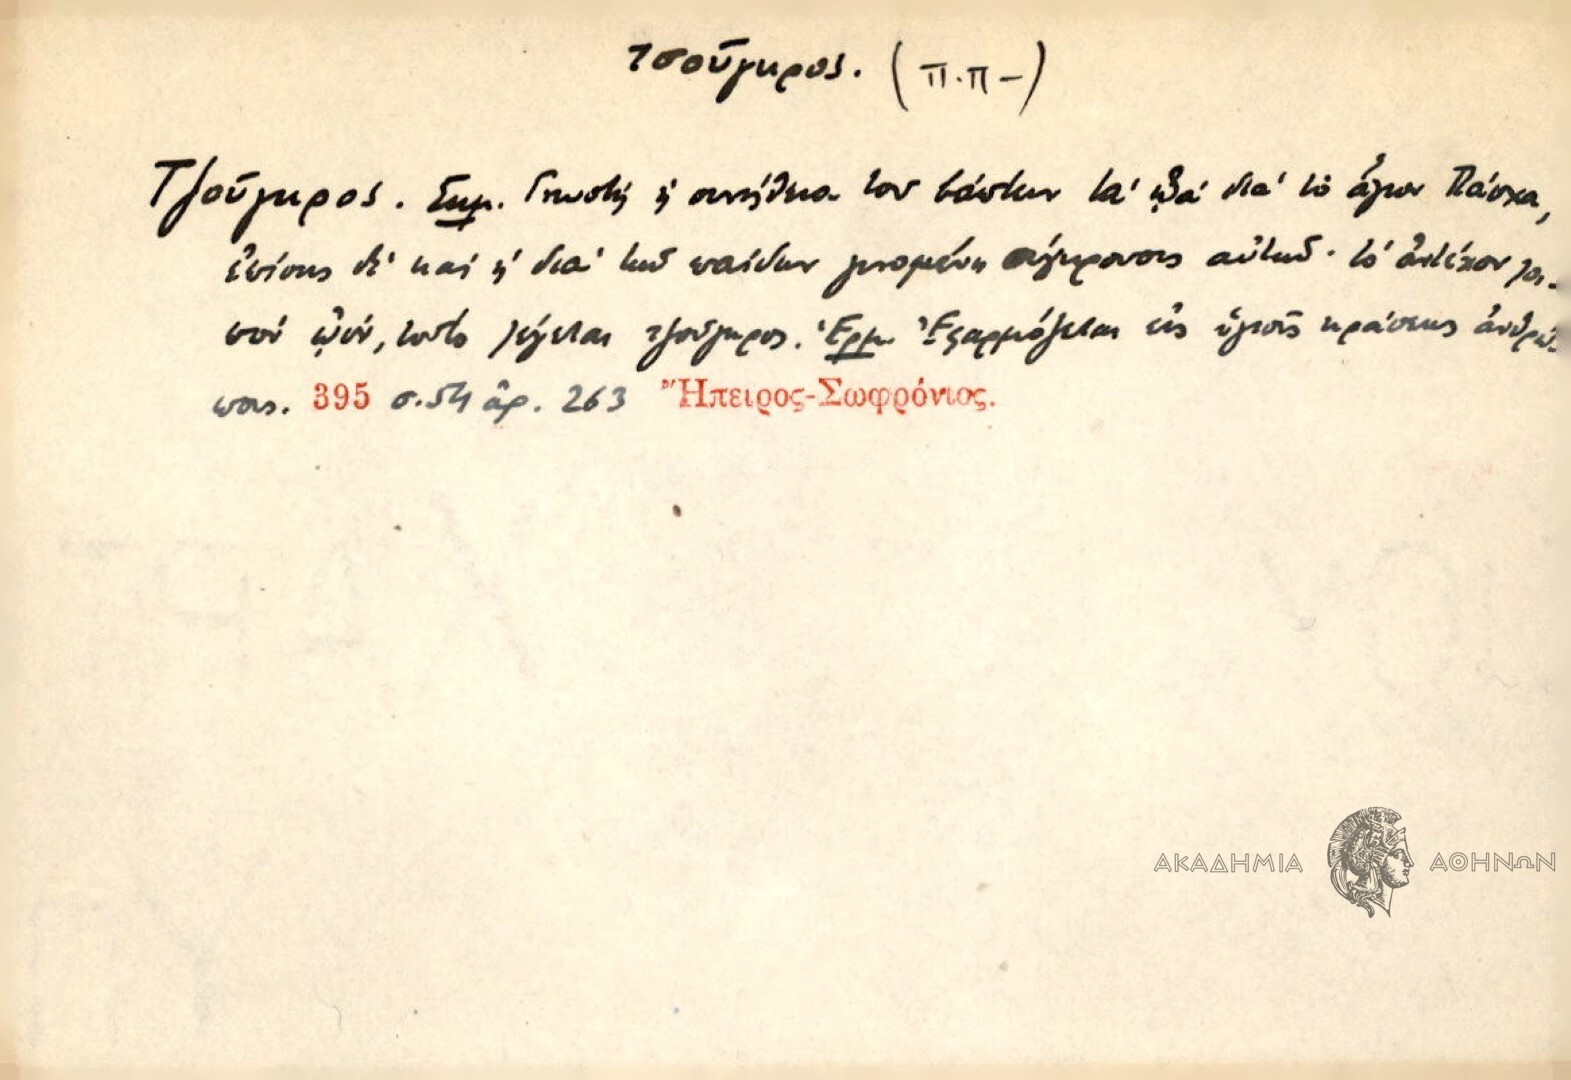 τσοῦγκρος. (π.π-)
Τζοῦγκρος. Σημ. Γνωστὴ ἡ συνήθεια τοῦ βάπτειν τὰ ᾠὰ διὰ τὸ ἅγιον Πάσχα,
ἐπίσης δὲ καὶ ἡ διὰ τῶν παίδων γινομένη σύγκρουσις αὐτῶν· τὸ ἀντέχον λοι-
πὸν ᾠόν, τοῦτο λέγεται τζοῦγκρος. Ἑρμ. Ἐξαρμόζεται εἰς ὑγιοῦς κράσεως ἀνθρώ-
πους. 395 σ. 54 ἀρ. 263 Ἤπειρος-Σωφρόνιος.
ΑΚΑΔΗΜΙΑ ΑΘΗΝΩΝ